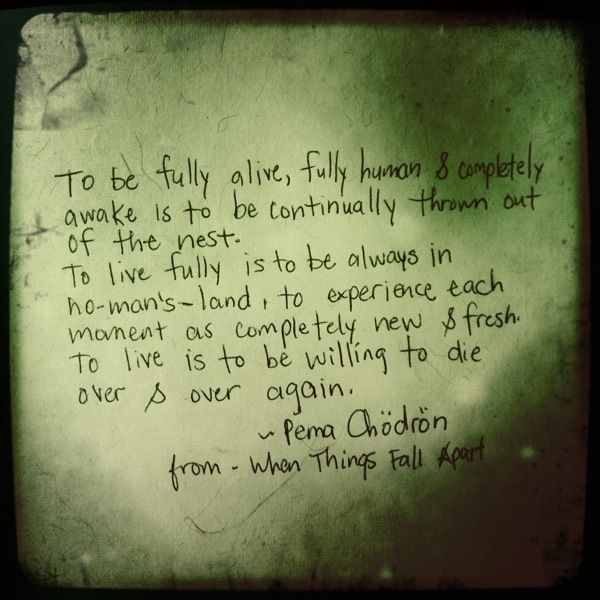 To be fully alive, fully human & completely
awake is to be continually thrown out
of the nest.
To live fully is to be always in
no-man's-land, to experience each
moment as completely new & fresh.
To live is to be willing to die
over & over again.
~ Pema Chödrön
from - When Things Fall Apart